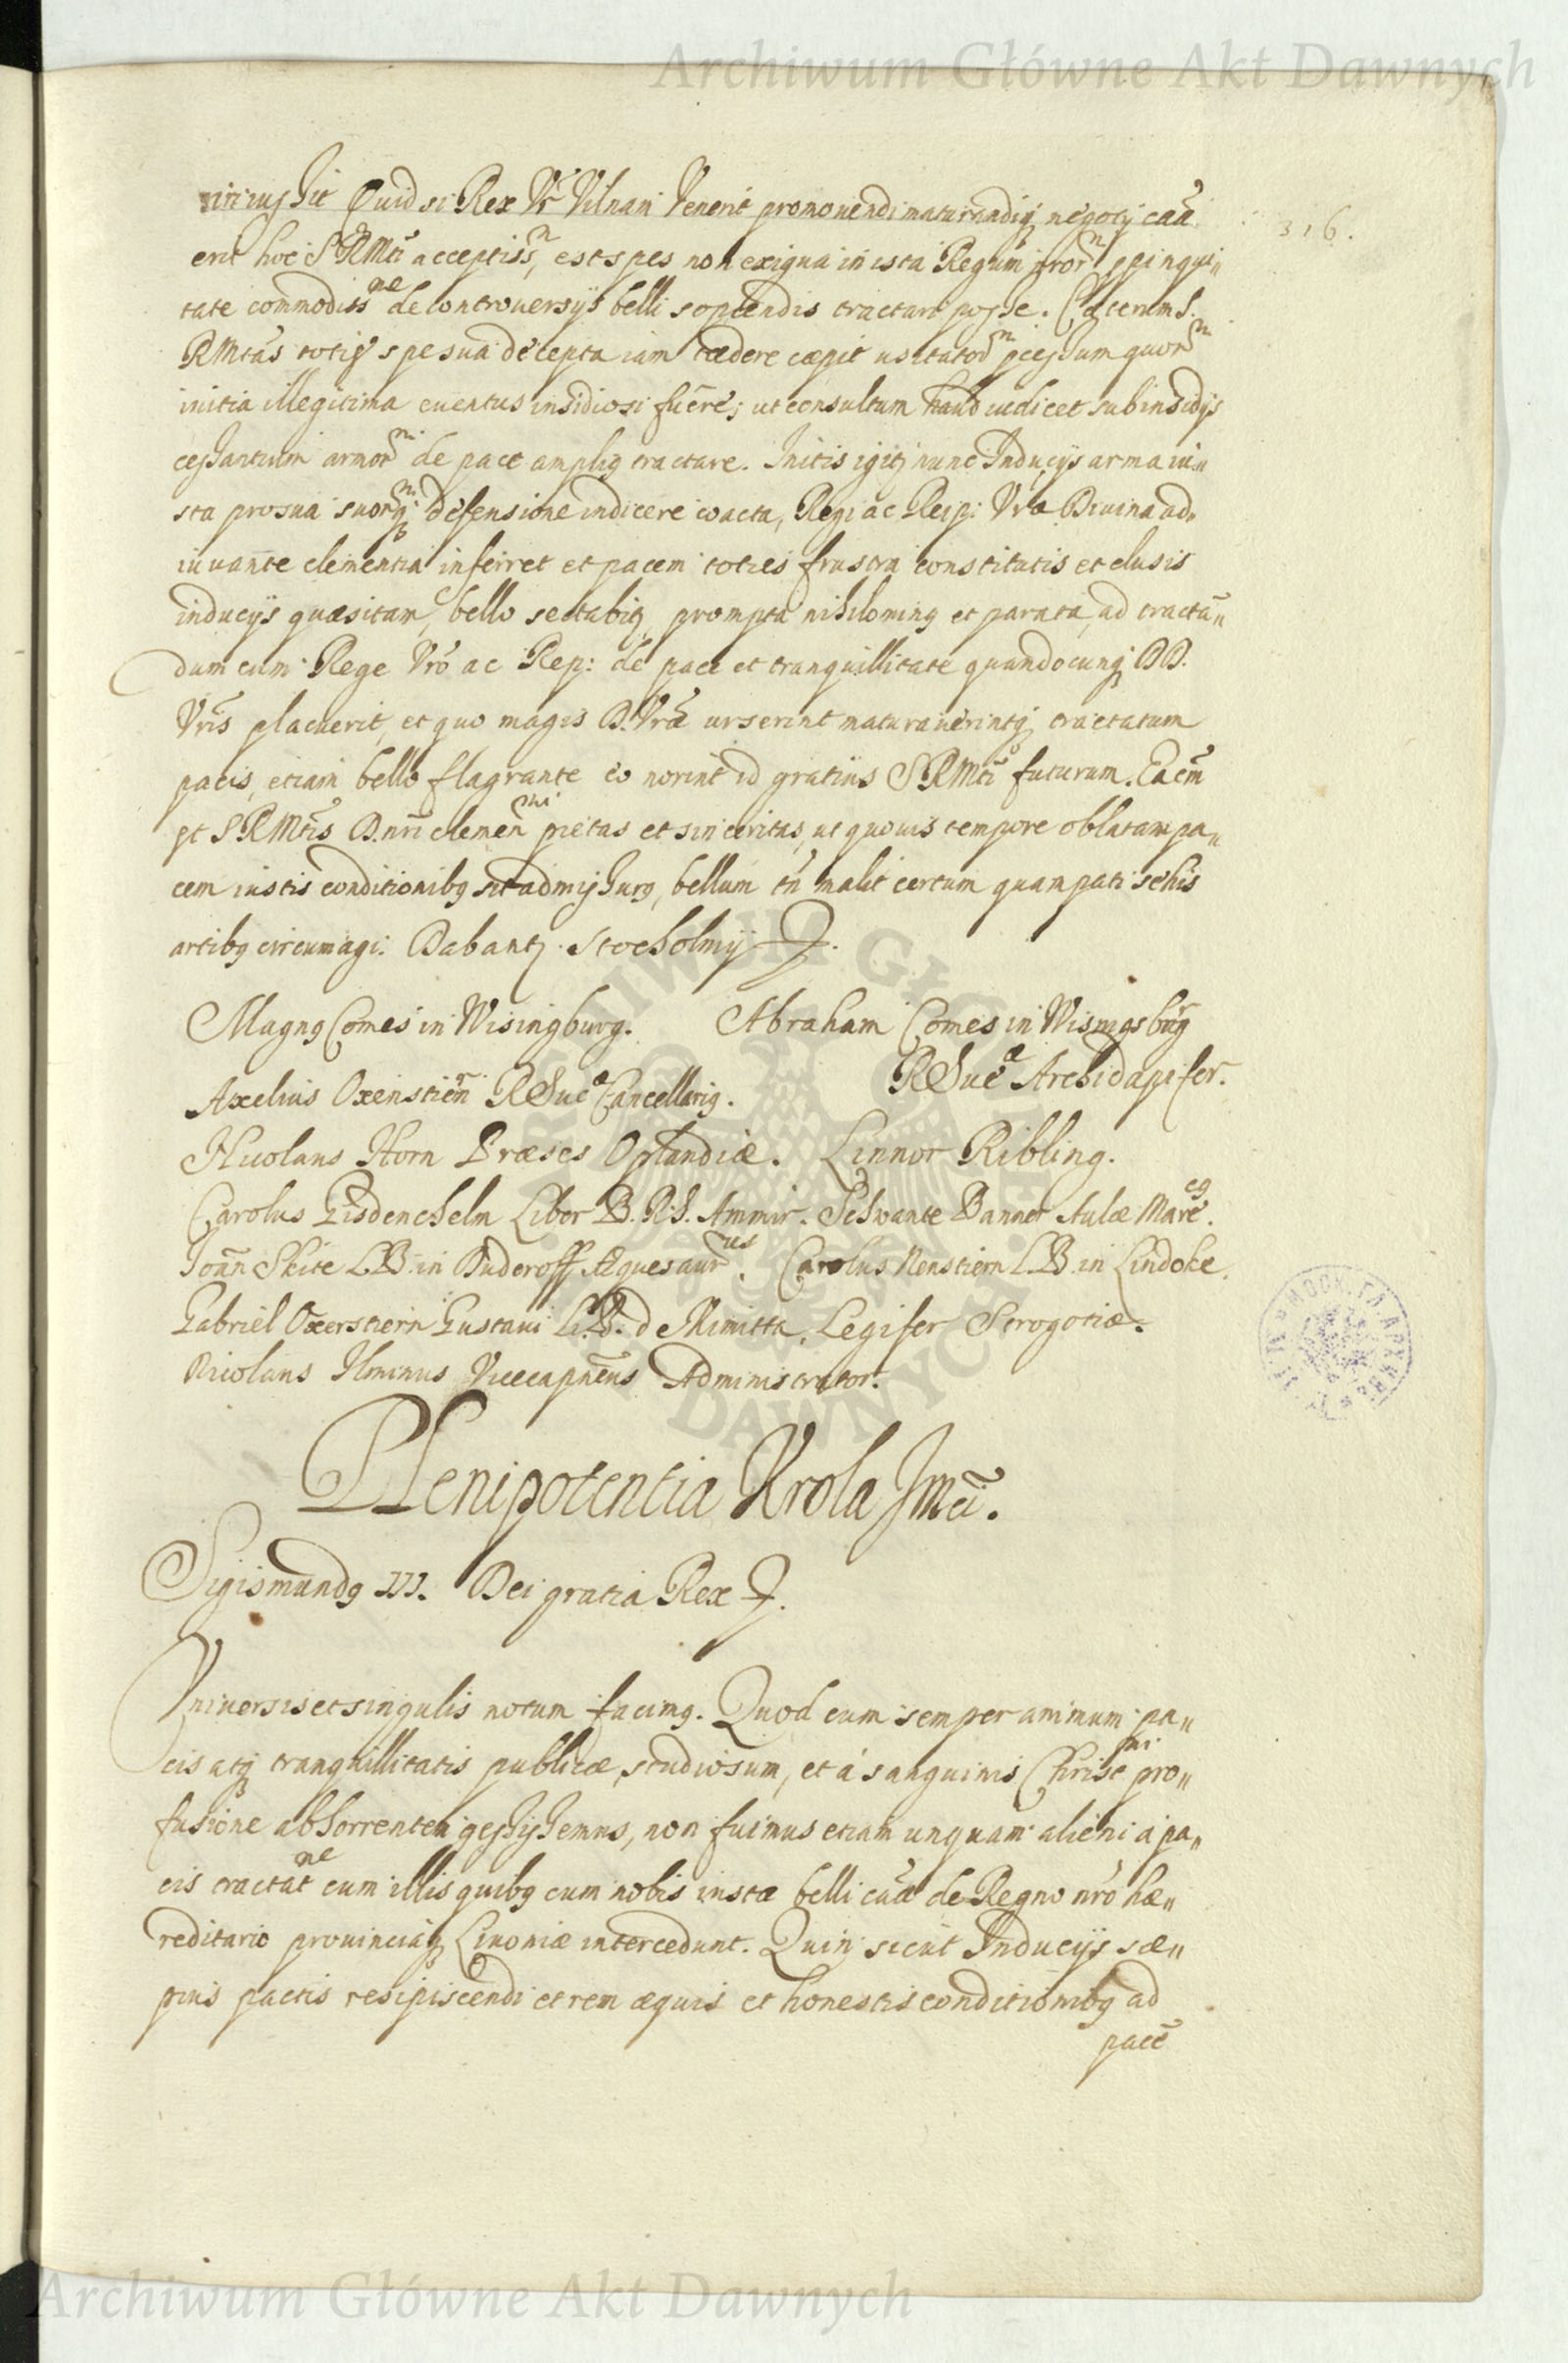 Archiwum Główne Akt Dawnych
316.
Quid si Rex Vr̃ Vilnam Venerit promouendi maturandiq; negotij cãã
erit hoc S RMti acceptiss, est spes non exigua in ista Regum pinqui„
tate commodissne de controuersijs belli sopiendis tractari posse. Cæterum S.
RMtas toties spe sua decepta iam tædere cæpit usitator pcessum quor
initia illegitima euentus insidiosi fuere; ut consultum haud iudicet sub insidijs
cessantium armor de pace amplig tractare. Initis igitj nunc Inducijs arma iu„
sta pro sua suorq; defensione indicere coacta, Regi ac Reip: Vrã Diuina ad„
iuuante clementia inferret et pacem toties frustra constitutis et elusis
inducijs quæsitam, bello sectabitj prompta nihiloming et parata, ad tractã„
dum cum Rege Vrõ ac Rep: de pace et tranquillitate quandocunq; DD.
Vris placuerit, et quo magis D. Vræ urserint maturauerintq; tractatum
pacis, etiam bello flagrante eo norint id gratius SRMti futurum. Ea em̃
pt SRMtis D. nrĩ clemenmi pietas et sinceritas, ut quouis tempore oblatam pa„
cem iustis conditionibg sit admissurg, bellum tñ malit certum quam pati se his
artibg circumagi. Dabantj Stocholmij
Magng Comes in Wisingburg. Abraham Comes in Wisingsburg
RSueæ Archidapifer.
Axelius Oxenstiern RSueæ Cancellarig.
Nicolaus Horn Præses Oplandiæ. Linnor Ribling.
Carolus Gildenchelm Liber B. R.S. Ammir. Schwante Banner Aulæ Mareeg.
Joañ Skite LB. in Duderoff Æquesaurus. Carolus Nenstiern LB. in Lindoke.
Gabriel Oxerstiern Gustaui Li.B. d Mimitta, Legifer Scrogotiæ.
Nicolaus Vicecapneus Administrator.
Plenipotentia Krola Jmci.
Sigismundg III. Dei gratia Rex
Vniuersis et singulis notum facimg. Quod cum semper animum pa„
cis atq; tranquillitatis publicæ, studiosum, et á sanguinis Christni pro„
fusione abhorrentem gessissemus, non fuimus etiam unquam alieni a pa„
cis tractatne cum illis quibg cum nobis iustæ belli cãa de Regno nr̃o hæ„
reditario prouinciaq; Liuoniæ intercedunt. Quin sicut Inducijs sæ„
pius pactis resipiscendi et rem æquis et honestis conditionibg ad
pacẽ
Archiwum Główne Akt Dawnych